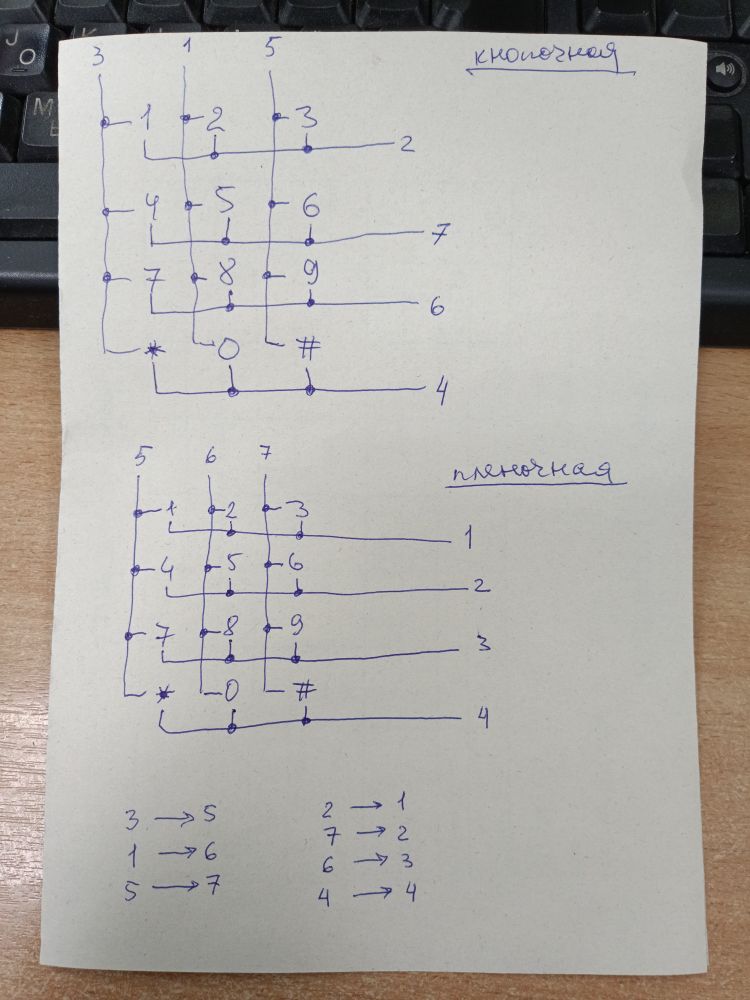 3 1 5
кнопочная
1 2 3 2
4 5 6 7
7 8 9 6
* 0 # 4
5 6 7
пленочная
1 2 3 1
4 5 6 2
7 8 9 3
* 0 # 4
3 → 5
1 → 6
5 → 7
2 → 1
7 → 2
6 → 3
4 → 4
J
O
M